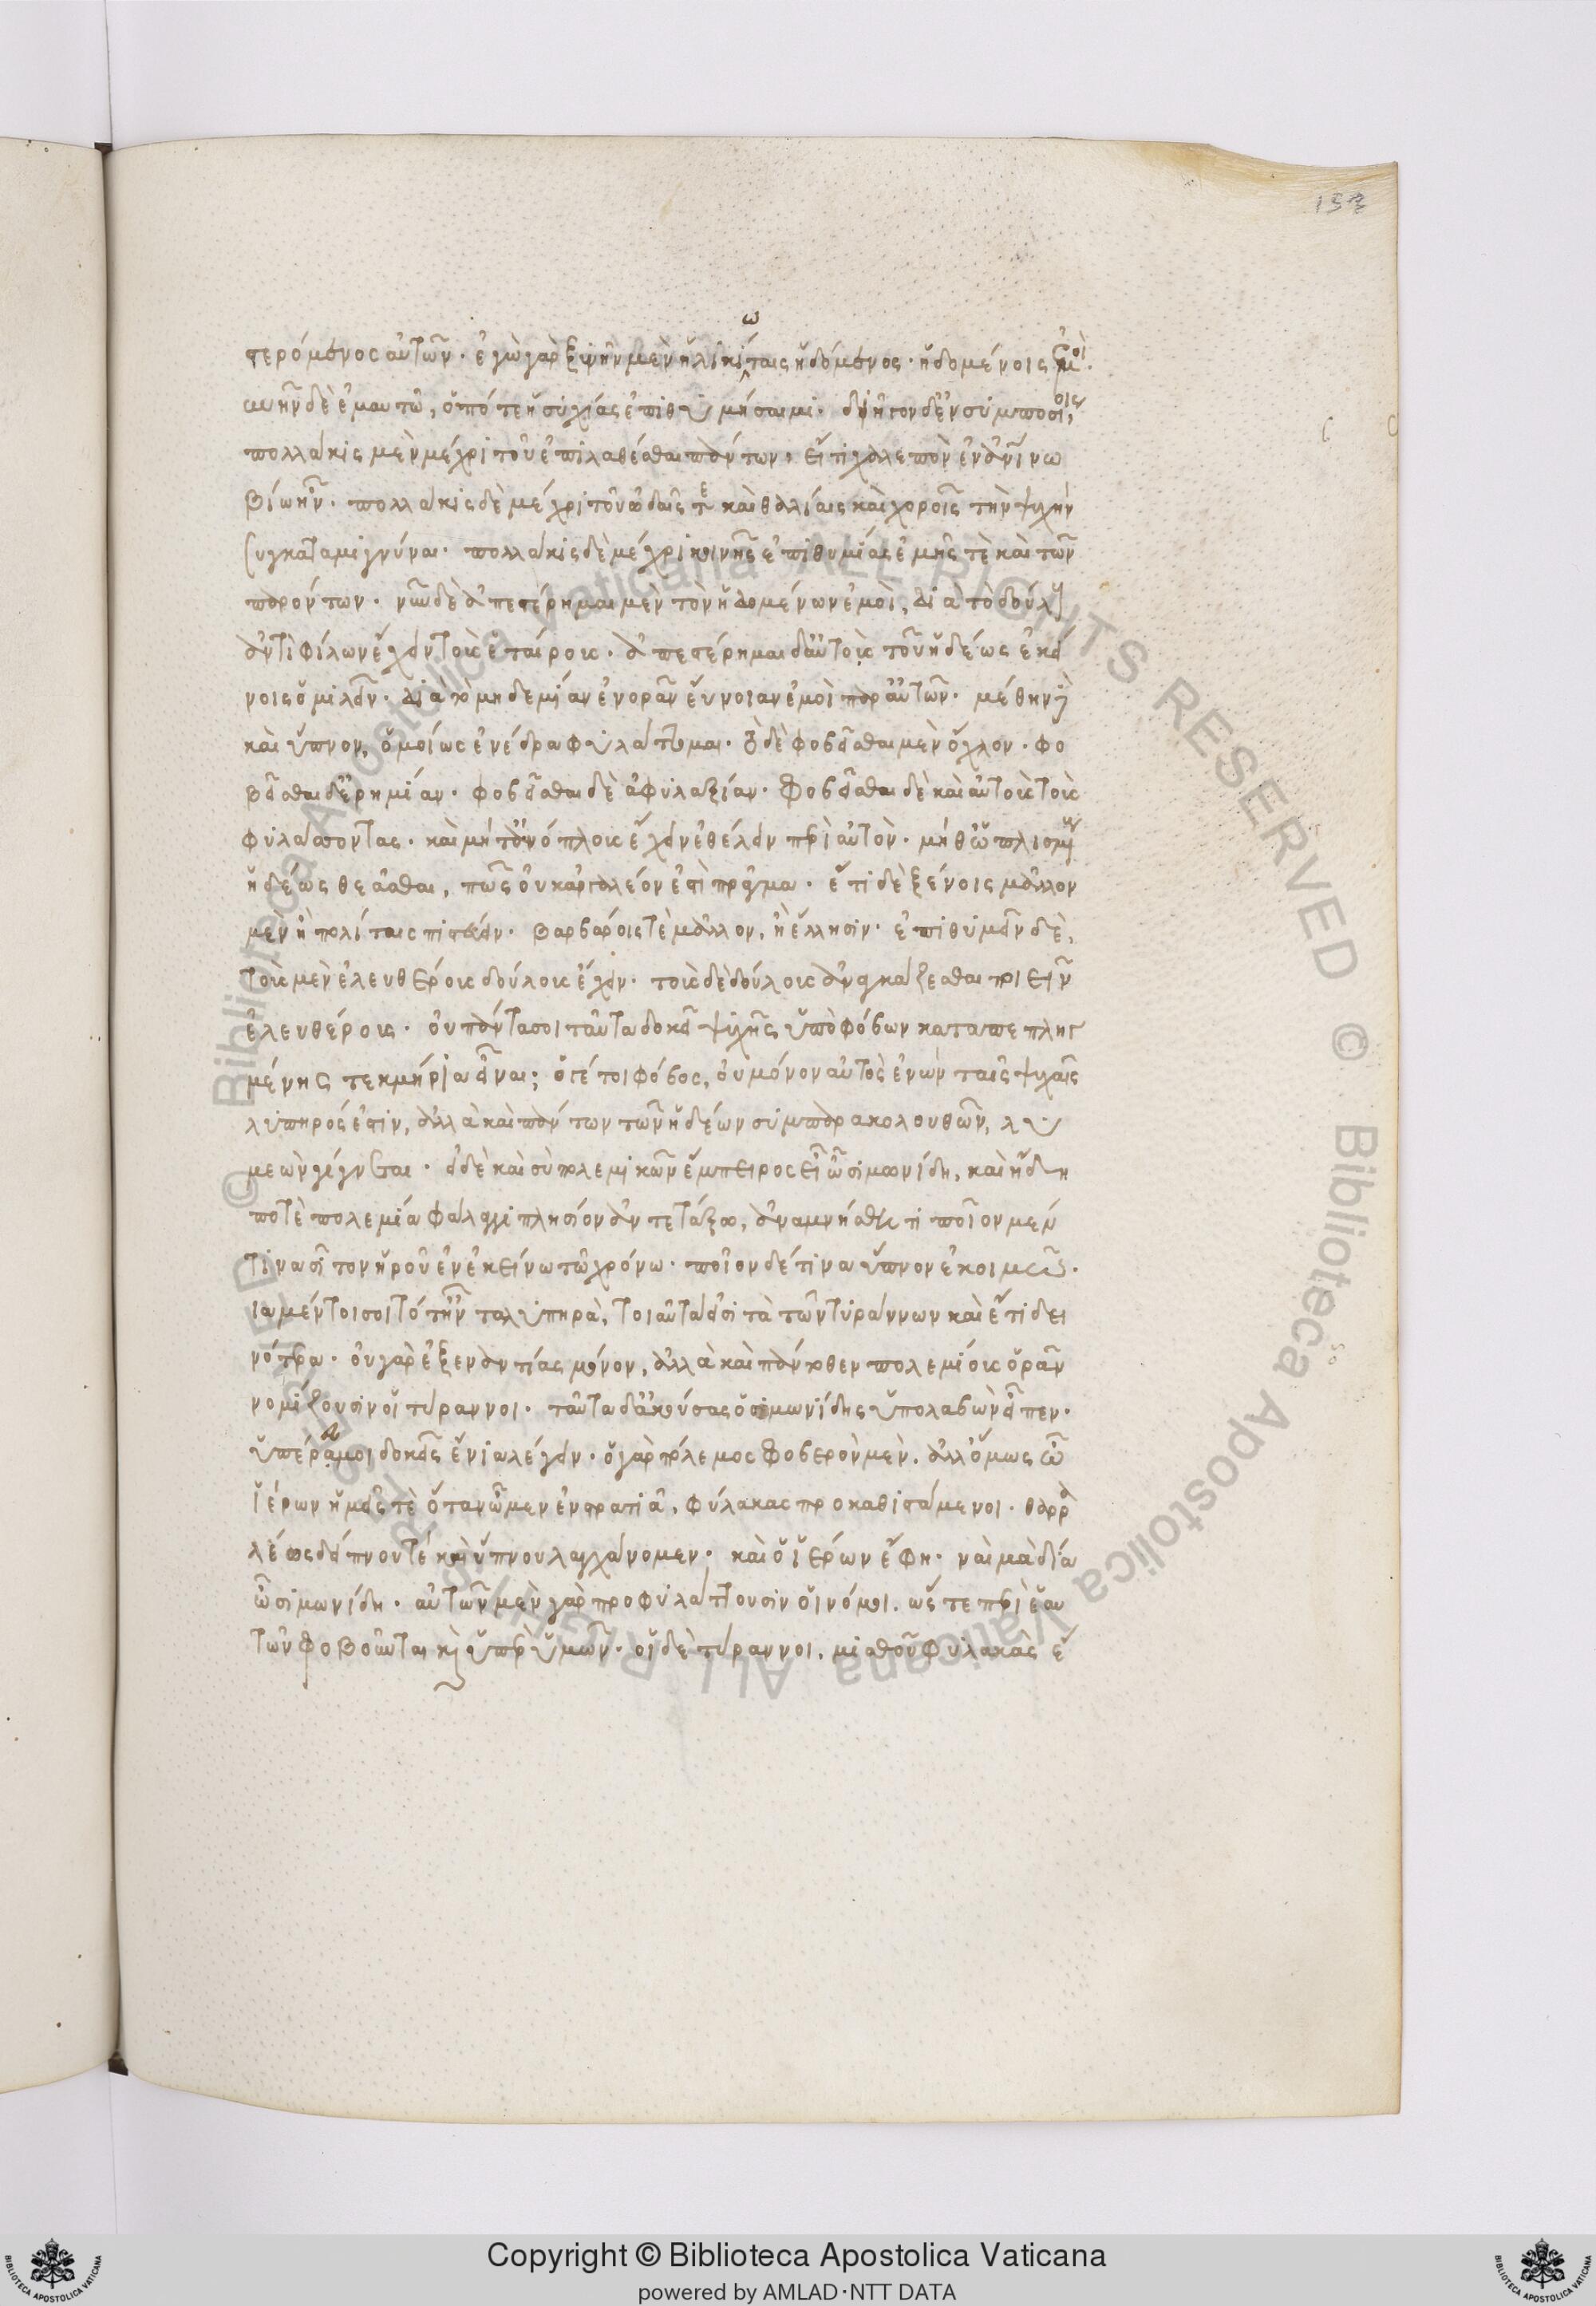 153
στερόμενος αὐτῶν· ἐγὼ γὰρ ξυνῆν μὲν ἡλικιώταις ἡδόμενος· ἡδομένοις ἐμοὶ·
συνῆν δὲ ἐμαυτῶ, ὁπότε ἡσυχίας ἐπιθυμήσαιμι· διῆγον δ' ἐν συμποσίοις,
πολλάκις μὲν μέχρι τοῦ ἐπιλαθέσθαι πάντων, εἴ τι χαλεπὸν ἐν ἀνθρωπίνω
βίω ἦν· πολλάκις δὲ μέχρι τοῦ ὠδαῖς τε καὶ θαλίαις καὶ χοροῖς τὴν ψυχὴν
συγκαταμιγνύναι· πολλάκις δὲ μέχρι κοινῆς ἐπιθυμίας ἐμῆς τὲ καὶ τῶν
παρόντων· νῦν δὲ ἀπεστέρημαι μὲν τῶν ἡδομένων ἐμοὶ, διὰ τὸ δούλους
ἀντὶ φίλων ἔχειν τοὺς ἑταίρους· ἀπεστέρημαι δ' αὐτοὺς τοῦ ἡδέως ἐκεί
νοις ὁμιλεῖν· διὰ τὸ μηδεμίαν ἐνορᾶν εὔνοιαν ἐμοὶ παρ' αὐτῶν· μέθην δὲ
καὶ ὕπνον, ὁμοίως ἐνέδρα φυλάττομαι· τὸ δὲ φοβεῖσθαι μὲν ὄχλον· φο
βεῖσθαι δ' ἐρημίαν· φοβεῖσθαι δὲ ἀφυλαξίαν· φοβεῖσθαι δὲ καὶ αὐτοὺς τοὺς
φυλάσσοντας· καὶ μήτ' ἀνόπλους ἔχειν ἐθέλειν περὶ αὐτὸν· μήθ' ὡπλισμένους
ἡδέως θεᾶσθαι, πῶς οὐκ ἀργαλέον ἐστὶ πρᾶγμα· ἔτι δὲ ξένοις μᾶλλον
μὲν ἢ πολίταις πιστεύειν· βαρβάροις τὲ μᾶλλον, ἢ ἕλλησιν· ἐπιθυμεῖν δὲ,
τοὺς μὲν ἐλευθέρους δούλους ἔχειν· τοὺς δὲ δούλους ἀναγκάζεσθαι ποιεῖν
ἐλευθέρους· οὐ πάντα σοι ταῦτα δοκεῖ ψυχῆς ὑπὸ φόβων καταπεπληγ
μένης τεκμήρια εἶναι; ὅ γέ τοι φόβος, οὐ μόνον αὐτὸς ἐνὼν ταῖς ψυχαῖς
λυπηρός ἐστιν, ἀλλὰ καὶ πάντων τῶν ἡδέων συμπαρακολουθῶν, λυ
μεὼν γίγνεται· εἰ δὲ καὶ σὺ πολεμικῶν ἔμπειρος εἶ ὦ σιμωνίδη, καὶ ἤδη
ποτὲ πολεμία φάλαγγι πλησίον ἀντετάξω, ἀναμνήσθητι ποῖον μέν
τινα σῖτον ἡροῦ ἐν ἐκείνω τῶ χρόνω· ποῖον δέ τινα ὕπνον ἐκοιμῶ·
οἷα μέντοι σοι τότ' ἦν τὰ λυπηρὰ, τοιαῦτά ἐστι τὰ τῶν τυράννων καὶ ἔτι δει
νότερα· οὐ γὰρ ἐξ ἐναντίας μόνον, ἀλλὰ καὶ πάντοθεν πολεμίους ὁρᾶν
νομίζουσιν οἱ τύραννοι· ταῦτα δ' ἀκούσας ὁ σιμωνίδης ὑπολαβὼν εἶπεν·
ὑπέρευ μοι δοκεῖς ἔνια λέγειν· ὁ γὰρ πόλεμος φοβερὸν μὲν. ἀλλ' ὅμως ὦ
ἱέρων ἡμεῖς τὲ ὅταν ὦμεν ἐν στρατιᾶ, φύλακας προκαθιστάμενοι· θαρρα
λέως δείπνου τέ καὶ ὕπνου λαγχάνομεν· καὶ ὁ ἱέρων ἔφη· ναὶ μὰ δία
ὦ σιμωνίδη· αὐτῶν μὲν γὰρ προφυλάττουσιν οἱ νόμοι. ὥστε περὶ ἑαυ
τῶν φοβοῦνται καὶ ὑπὲρ ὑμῶν· οἱ δὲ τύραννοι, μισθοῦ φύλακας ἔ
Copyright © Biblioteca Apostolica Vaticana
powered by AMLAD·NTT DATA